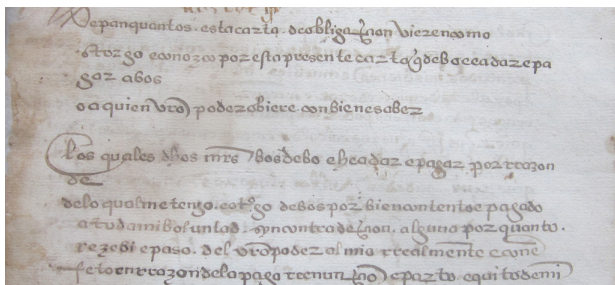 Sepan quantos esta carta de obligaçion vieren como
otorgo e conozco por esta presente carta q̃ debo e e a dar e pa
gar a bos
o a quien vrõ poder obiere conbiene saber
los quales dhos mrs bos debo e he a dar e pagar por rrazon
de
de lo qual me tengo e otgo de bos por bien contento e pagado
a toda mi boluntad contradiçion alguna por quanto
rezebi e paso del vrõ poder al mio rrealmente e con e
feto en rrazon de la paga rrenunçio e parto e quito de mi